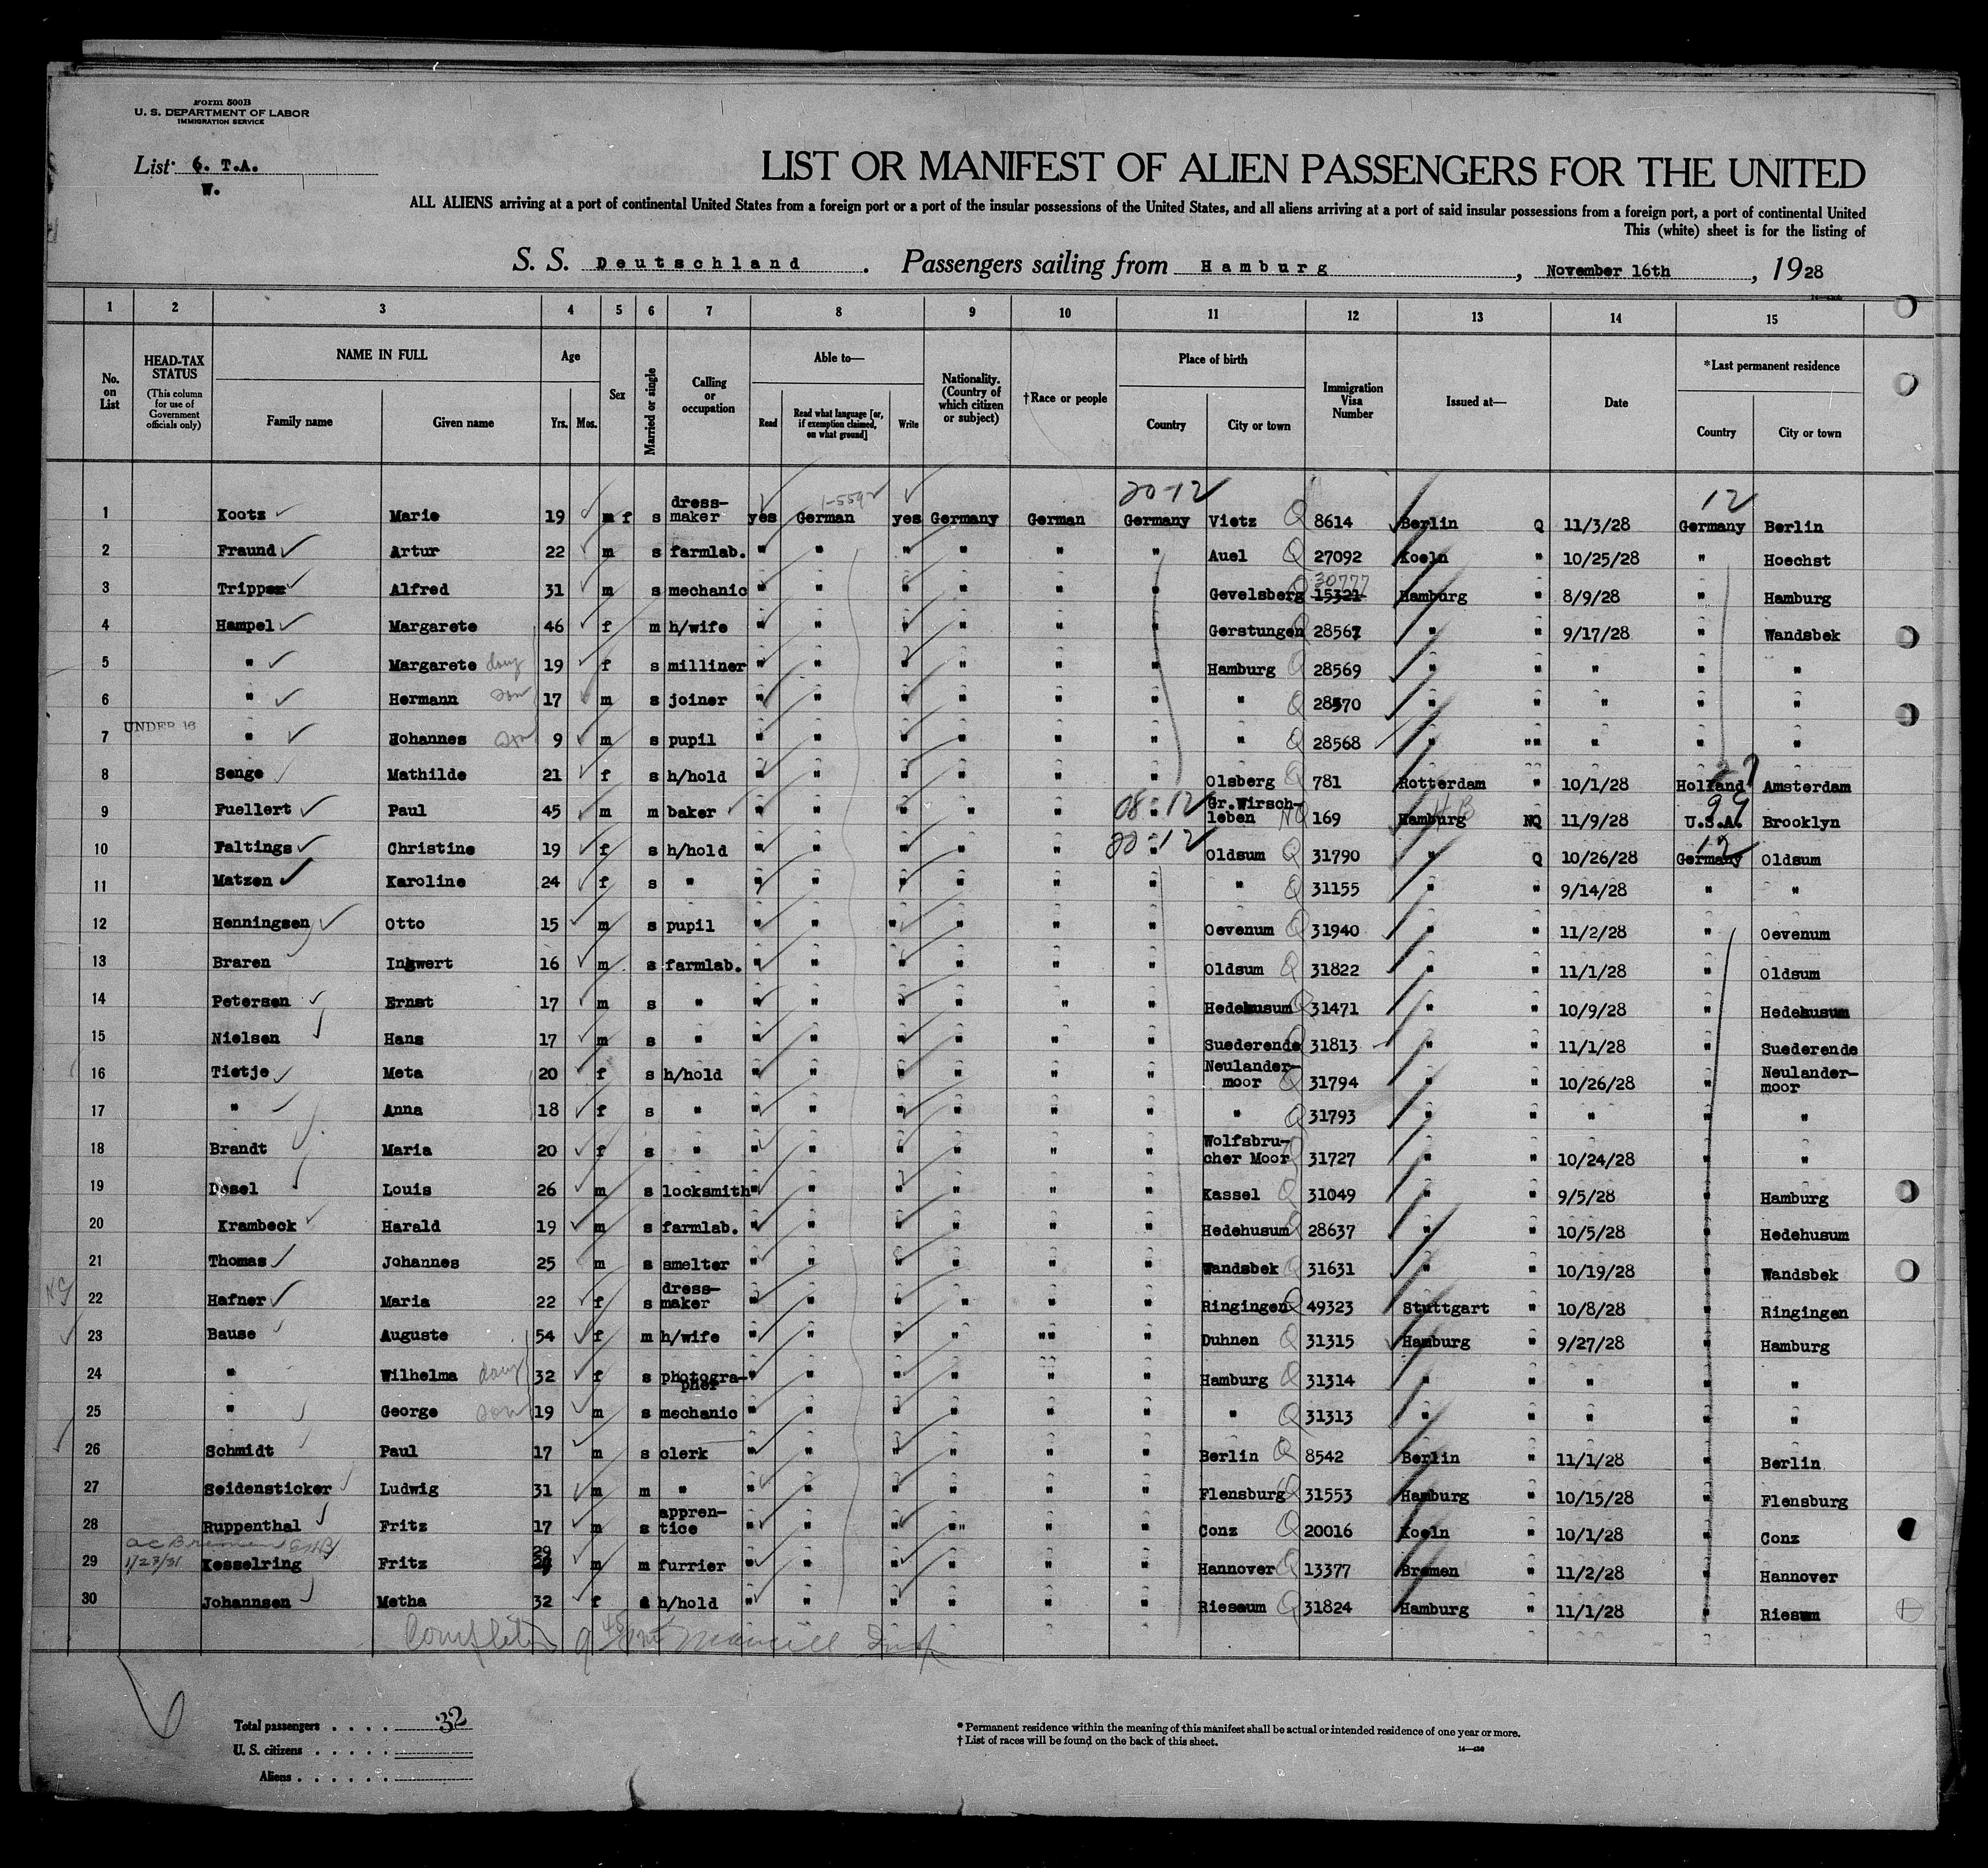 Form 500B
U. S. DEPARTMENT OF LABOR
IMMIGRATION SERVICE
List 6. T.A.
W.
LIST OR MANIFEST OF ALIEN PASSENGERS FOR THE UNITED
ALL ALIENS arriving at a port of continental United States from a foreign port or a port of the insular possessions of the United States, and all aliens arriving at a port of said insular possessions from a foreign port, a port of continental United
This (white) sheet is for the listing of
S. S. Deutschland. Passengers sailing from Hamburg, November 16th, 1928
1 2 3 4 5 6 7 8 9 10 11 12 13 14 15
No. on List
HEAD-TAX STATUS
(This column for use of Government officials only)
NAME IN FULL
Family name Given name
Age
Yrs. Mos.
Sex
Married or single
Calling or occupation
Able to—
Read Read what language [or, if exemption claimed, on what ground] Write
Nationality. (Country of which citizen or subject)
†Race or people
Place of birth
Country City or town
Immigration Visa Number
Issued at—
Date
*Last permanent residence
Country City or town
20-12 12
1 Kootz Marie 19 m f s dress-maker yes German yes Germany German Germany Vietz Q 8614 Berlin Q 11/3/28 Germany Berlin
2 Fraund Artur 22 m s farmlab. " " " " " " Auel Q 27092 Koeln " 10/25/28 " Hoechst
30777
3 Tripp Alfred 31 m s mechanic " " " " " " Gevelsberg Q 15321 Hamburg " 8/9/28 " Hamburg
4 Hampel Margarete 46 f m h/wife " " " " " " Gerstungen Q 28567 " " 9/17/28 " Wandsbek
5 " Margarete daug 19 f s milliner " " " " " " Hamburg Q 28569 " " " " "
6 " Hermann son 17 m s joiner " " " " " " " Q 28570 " " " " "
UNDER 16
7 " Hohannes son 9 m s pupil " " " " " " " Q 28568 " "" " " "
8 Senge Mathilde 21 f s h/hold " " " " " " Olsberg Q 781 Rotterdam " 10/1/28 Holland Amsterdam
9 Fuellert Paul 45 m m baker " " " " " 08-12 " Gr.Wirsch-leben NQ 169 Hamburg HB NQ 11/9/28 99 U.S.A. Brooklyn
10 Faltings Christine 19 f s h/hold " " " " " 20-12 " Oldsum Q 31790 " Q 10/26/28 12 Germany Oldsum
11 Matzen Karoline 24 f s " " " " " " " " Q 31155 " " 9/14/28 " "
12 Henningsen Otto 15 m s pupil " " " " " " Oevenum Q 31940 " " 11/2/28 " Oevenum
13 Braren Ingwert 16 m s farmlab. " " " " " " Oldsum Q 31822 " " 11/1/28 " Oldsum
14 Petersen Ernst 17 m s " " " " " " " Hedehusum Q 31471 " " 10/9/28 " Hedehusum
15 Nielsen Hans 17 m s " " " " " " " Suederende Q 31813 " " 11/1/28 " Suederende
16 Tietje Meta 20 f s h/hold " " " " " " Neulander-moor Q 31794 " " 10/26/28 " Neulander-moor
17 " Anna 18 f s " " " " " " " " Q 31793 " " " " "
18 Brandt Maria 20 f s " " " " " " " Wolfsbru-cher Moor Q 31727 " " 10/24/28 " "
19 Desel Louis 26 m s locksmith " " " " " " Kassel Q 31049 " " 9/5/28 " Hamburg
20 Krambeck Harald 19 m s farmlab. " " " " " " Hedehusum Q 28637 " " 10/5/28 " Hedehusum
21 Thomas Johannes 25 m s smelter " " " " " " Wandsbek Q 31631 " " 10/19/28 " Wandsbek
22 Hafner Maria 22 f s dress-maker " " " " " " Ringingen Q 49323 Stuttgart " 10/8/28 " Ringingen
23 Bause Auguste 54 f m h/wife " " " " "" " Duhnen Q 31315 Hamburg " 9/27/28 " Hamburg
24 " Wilhelma daug 32 f s photogra-pher " " " " " " Hamburg Q 31314 " " " " "
25 " George son 19 m s mechanic " " " " " " " Q 31313 " " " " "
26 Schmidt Paul 17 m s clerk " " " " " " Berlin Q 8542 Berlin " 11/1/28 " Berlin
27 Seidensticker Ludwig 31 m m " " " " " " " Flensburg Q 31553 Hamburg " 10/15/28 " Flensburg
28 Ruppenthal Fritz 17 m s appren-tice " " " "" " " Conz Q 20016 Koeln " 10/1/28 " Conz
1/27/31
29 Kesselring Fritz 29 m m furrier " " " " " " Hannover Q 13377 Bremen " 11/2/28 " Hannover
30 Johannsen Metha 32 f s h/hold " " " " " " Riesum Q 31824 Hamburg " 11/1/28 " Riesum
Total passengers . . . . 32
U. S. citizens . . . . .
Aliens . . . . . .
* Permanent residence within the meaning of this manifest shall be actual or intended residence of one year or more.
† List of races will be found on the back of this sheet.